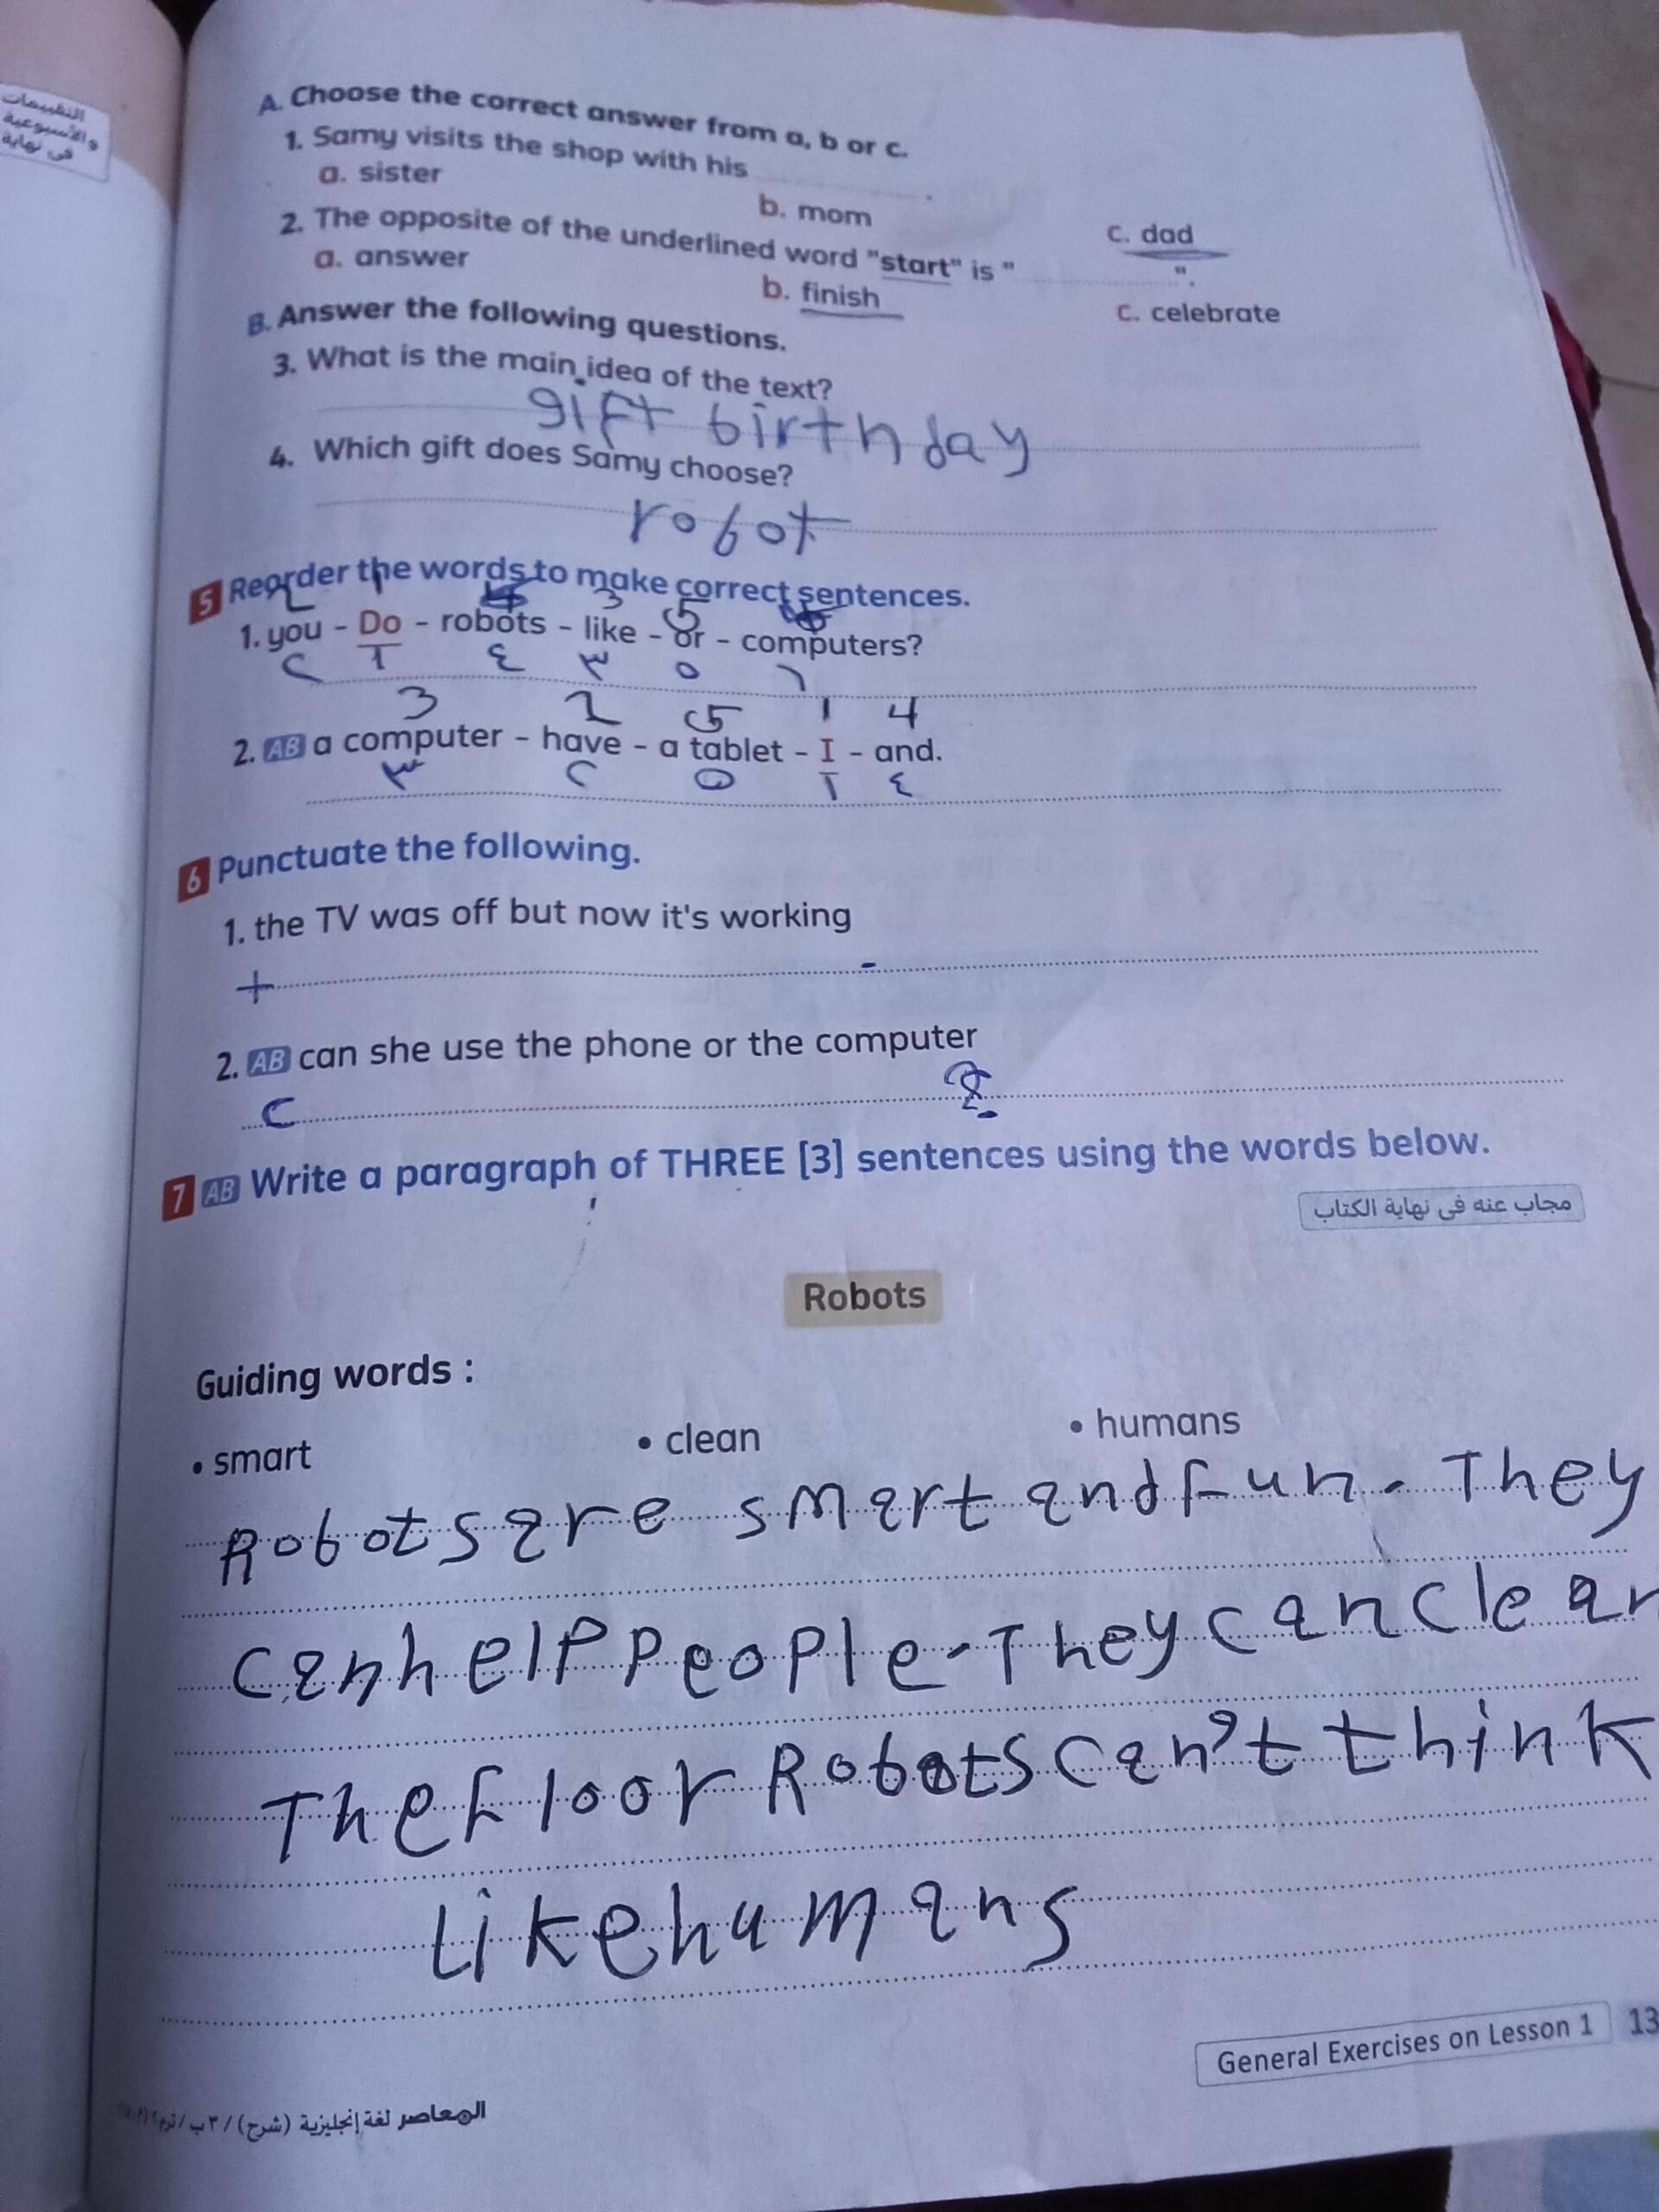 التقييمات
والأسبوعية
فى نهاية
A. Choose the correct answer from a, b or c.
1. Samy visits the shop with his .
a. sister b. mom c. dad
2. The opposite of the underlined word "start" is " ".
a. answer b. finish c. celebrate
B. Answer the following questions.
3. What is the main idea of the text?
gift birthday
4. Which gift does Samy choose?
robot
5 Reorder the words to make correct sentences.
2 1 3 5
1. you - Do - robots - like - or - computers?
٢ ١ ٤ ٣ ٥ ٦
3 2 5 1 4
2. AB a computer - have - a tablet - I - and.
٣ ٢ ٥ ١ ٤
6 Punctuate the following.
1. the TV was off but now it's working
2. AB can she use the phone or the computer
C ?
7 AB Write a paragraph of THREE [3] sentences using the words below.
مجاب عنه فى نهاية الكتاب
Robots
Guiding words :
• smart • clean • humans
Robots are smart and fun. They
can help people. They can clean
The floor Robots can't think
Like humans
General Exercises on Lesson 1 13
المعاصر لغة إنجليزية (شرح) / ٣ ب / ترم